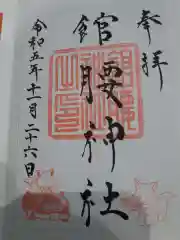 奉拝
館腰神社
令和五年十一月二十六日